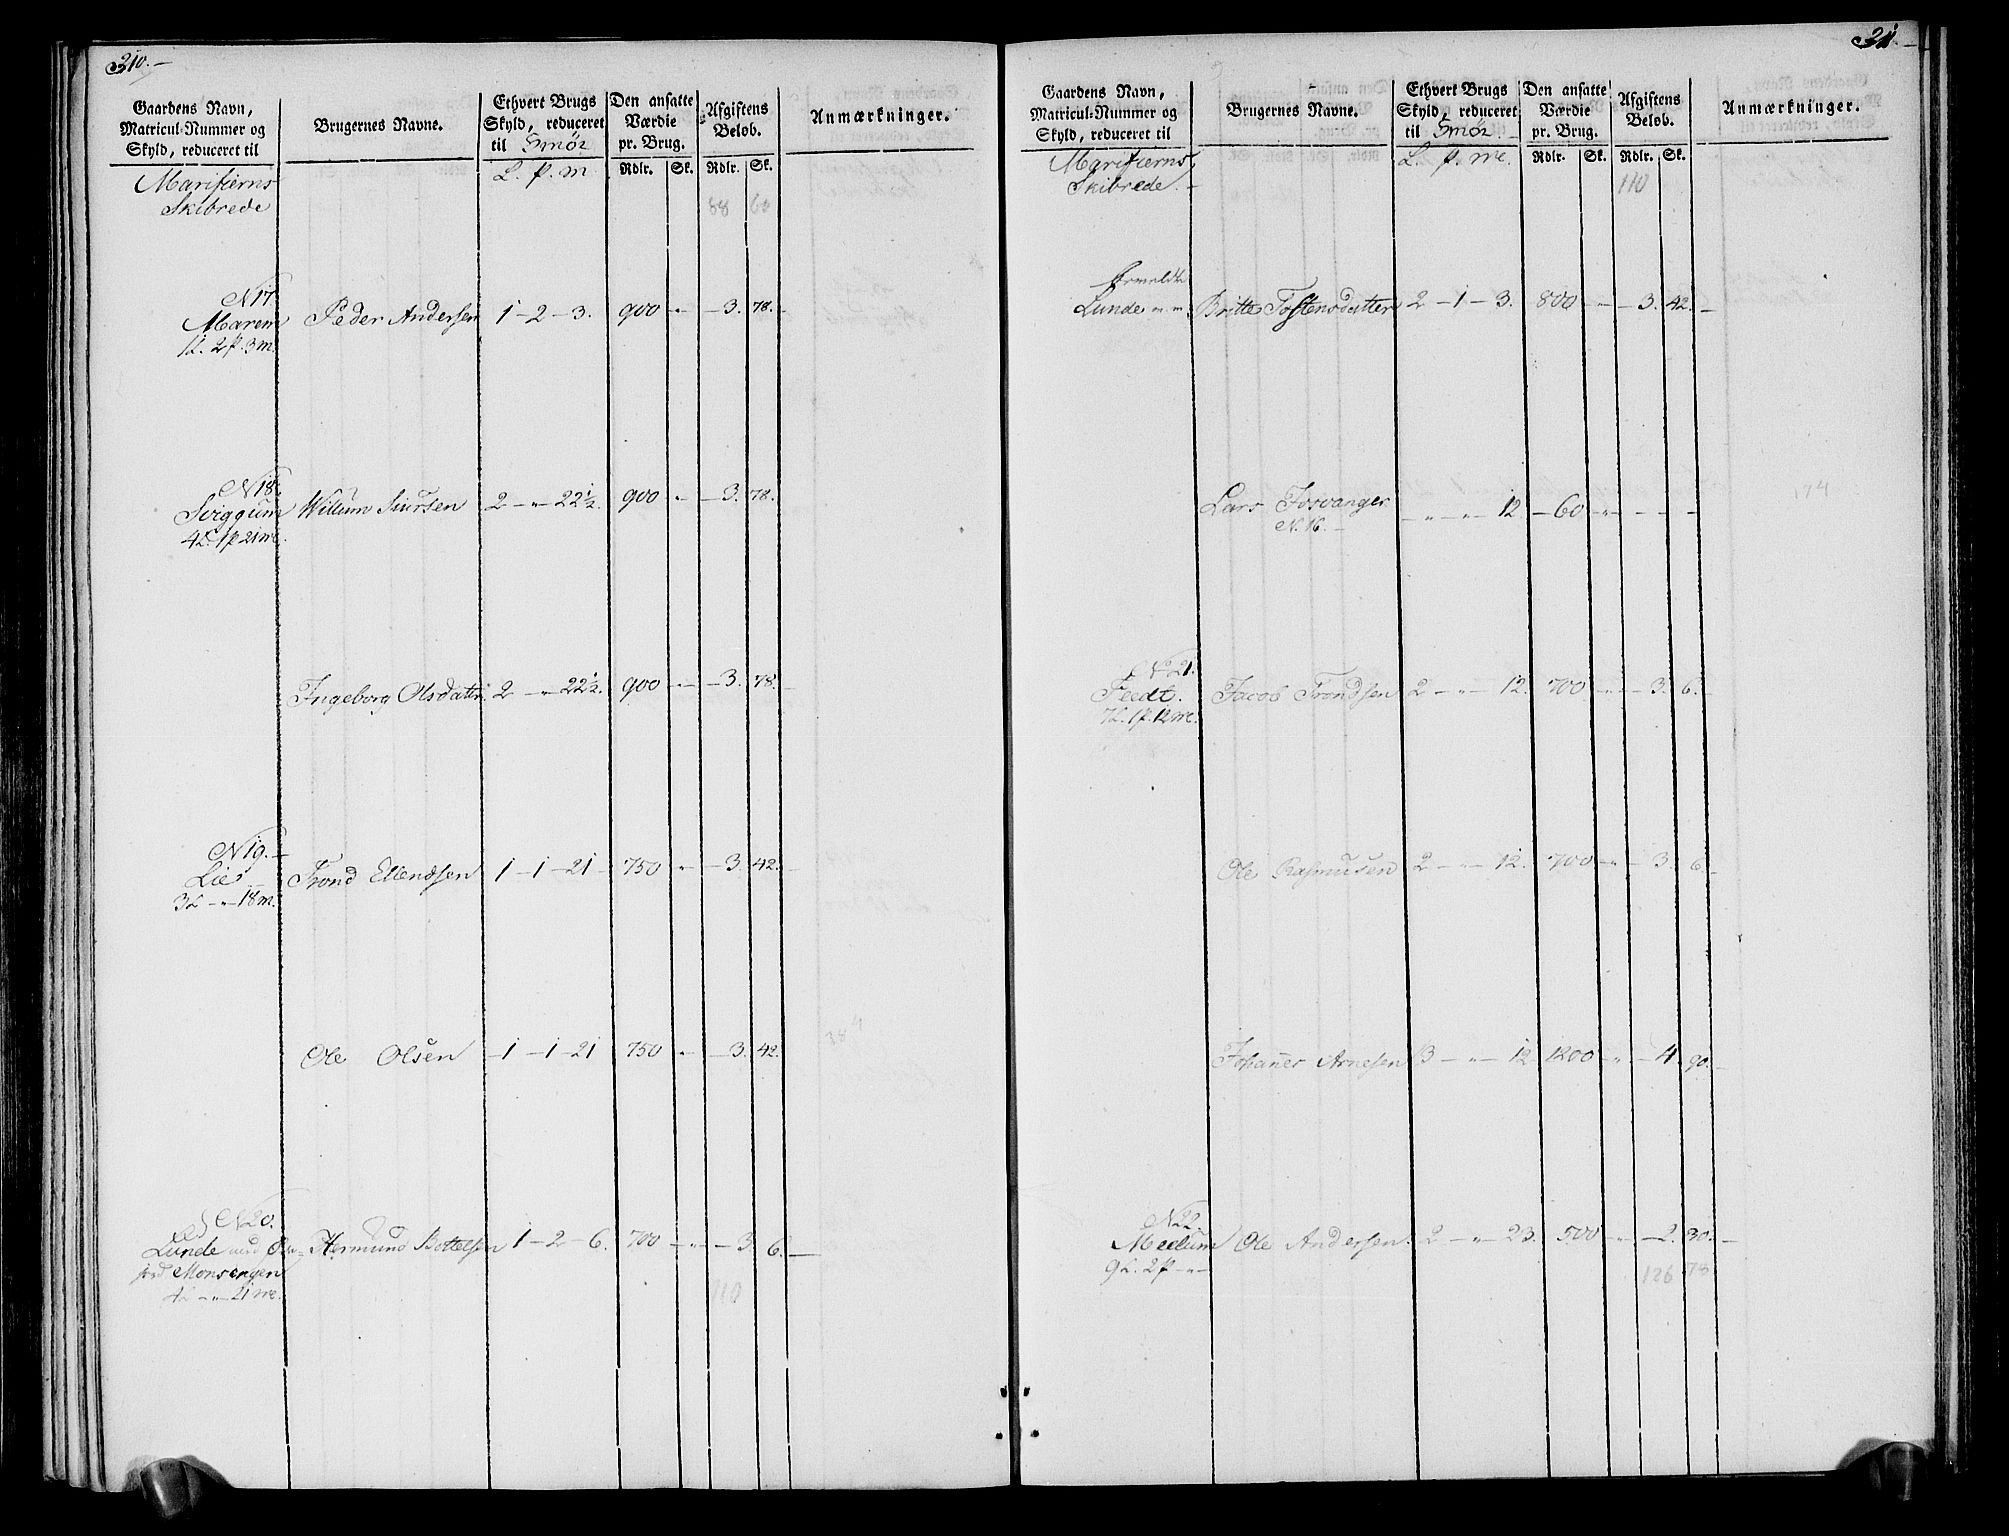 310.-
Gaardens Navn, Matricul-Nummer og Skyld, reduceret til
Brugernes Navne.
Ethvert Brugs Skyld, reduceret til Smör
Den ansatte Værdie pr. Brug.
Afgiftens Beløb.
Anmærkninger.
L. p. m
Rdlr. Sk. Rdlr. Sk.
Marifierns
Skibrede
88 60
N 17.
Marem Peder Andersen 1-2-3. 900 " -3. 78.-
1L. 2p. 3m.
N 18.
Sviggum Willum Siursen 2-"-22½. 900 " -3. 78.
4L. 1p 21m.
Ingeborg Olsdatter 2 -"-22½. 900 - -3. 78.-
N 19.-
Lie Trond Ellendsen 1-1-21- 750 " -3. 42.-
3L -"-18m.
Ole Olsen -1-1-21 750 " -3. 42.
N 20.
Lunde med Hermund Bottelsen 1-2-6. 700 -"- -3. 6.-
Monsengen
4L -"-21m.
110
311.-
Gaardens Navn, Matricul-Nummer og Skyld, reduceret til
Brugernes Navne.
Ethvert Brugs Skyld, reduceret til Smör
Den ansatte Værdie pr. Brug.
Afgiftens Beløb.
Anmærkninger.
L. p. m.
Rdlr. Sk. Rdlr. Sk.
Marifierns
Skibrede.-
110
Ermeldte
Lunde " ". Britte Tostensdatter 2-1-3. 800 - -3. 42.-
Lars Josvanger - " - " - 12 -60 -"- - - -
N. 16.-
174
N 21.
Feedt. Jacob Trondsen 2-"-12. 700 -"- 3. 6.-
7L. 1p. 12m.
Ole Rasmusen 2-"-12. 700 -"- 3. 6.-
Johanes Arnesen 3-"-12 1200 -"-4. 90.-
N 22.
Meelum Ole Andersen 2-"-23. 500 " -2. 30.-
9L. 2p -"-
126 78